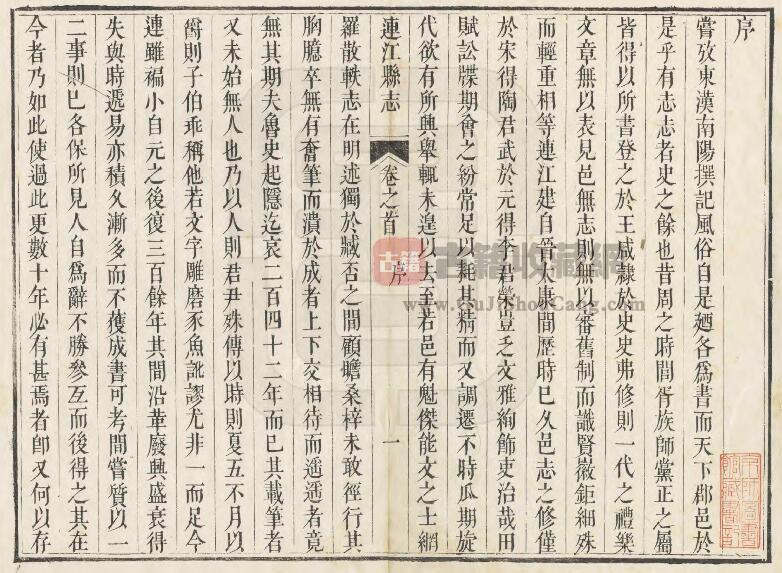 序
嘗攷東漢南陽撰記風俗自是廼各爲書而天下郡邑於
是乎有志志者史之餘也昔周之時閭胥族師黨正之屬
皆得以所書登之於王咸隷於史史弗修則一代之禮樂
文章無以表見邑無志則無以審舊制而識賢徽鉅細殊
而輕重相等連江建自晉太康間歷時已久邑志之修僅
於宋得陶君武於元得李君榮豈乏文雅絢飾吏治哉田
賦訟牒期會之紛常足以耗其精而又調遷不時瓜期旋
代欲有所興舉輒未遑以去至若邑有魁傑能文之士網
連江縣志
卷之首
序
一
羅散軼志在明述獨於臧否之間顧瞻桑梓未敢徑行其
胸臆卒無有奮筆而潰於成者上下交相待而遥遥者竟
無其期夫魯史起隱迄哀二百四十二年而已其載筆者
又未始無人也乃以人則君尹殊傳以時則夏五不月以
爵則子伯乖稱他若文字雕磨豕魚訛謬尤非一而足今
連雖褊小自元之後復三百餘年其間沿革廢興盛衰得
失與時遞易亦積久漸多而不獲成書可考間嘗質以一
二事則已各保所見人自爲辭不勝參互而後得之其在
今者乃如此使過此更數十年必有甚焉者卽又何以存
古籍
古籍收藏網
www.GuJiShouCang.com